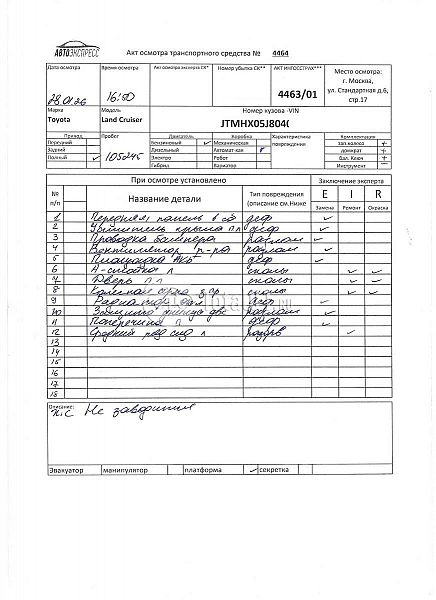 АВТОЭКСПРЕСС
Акт осмотра транспортного средства № 4464
Дата осмотра
Время осмотра
Акт осмотра эксперта СК*
Номер убытка СК**
АКТ ИНГОССТРАХ***
Место осмотра:
г. Москва,
ул. Стандартная д.6,
стр.17
16:50
4463/01
Марка
Модель
Номер кузова -VIN
Toyota
Land Cruiser
JTMHX05J804(
Привод
Пробег
Двигатель
Коробка
Характеристика повреждения
Комплектация
Передний
Бензиновый ✓
Механическая
зап.колесо +
Задний
Дизельный
Автомат-кая
домкрат +
Полный ✓
105245
Электро
Робот
бал. Ключ +
Гибрид
Вариатор
Инструмент —
№ п/п
При осмотре установлено
Заключение эксперта
Название детали
Тип повреждения
(описание см.Ниже
E I R
Замена Ремонт Окраска
1 Передняя панель в сб деф ✓
2 Усилитель крыла п л деф ✓
3 Проводка бампера разлом ✓
4 Вентилятор р-ра разлом ✓
5 Площадка АКБ деф ✓
6 А-стойка л сколы ✓ ✓
7 Дверь п л сколы ✓ ✓
8 сколы ✓ ✓
9 деф ✓
10 разлом ✓
11 Поперечина деф ✓
12 ✓
13
14
15
16
17
18
Описание:
Не заводится
Эвакуатор
манипулятор
платформа
✓ секретка